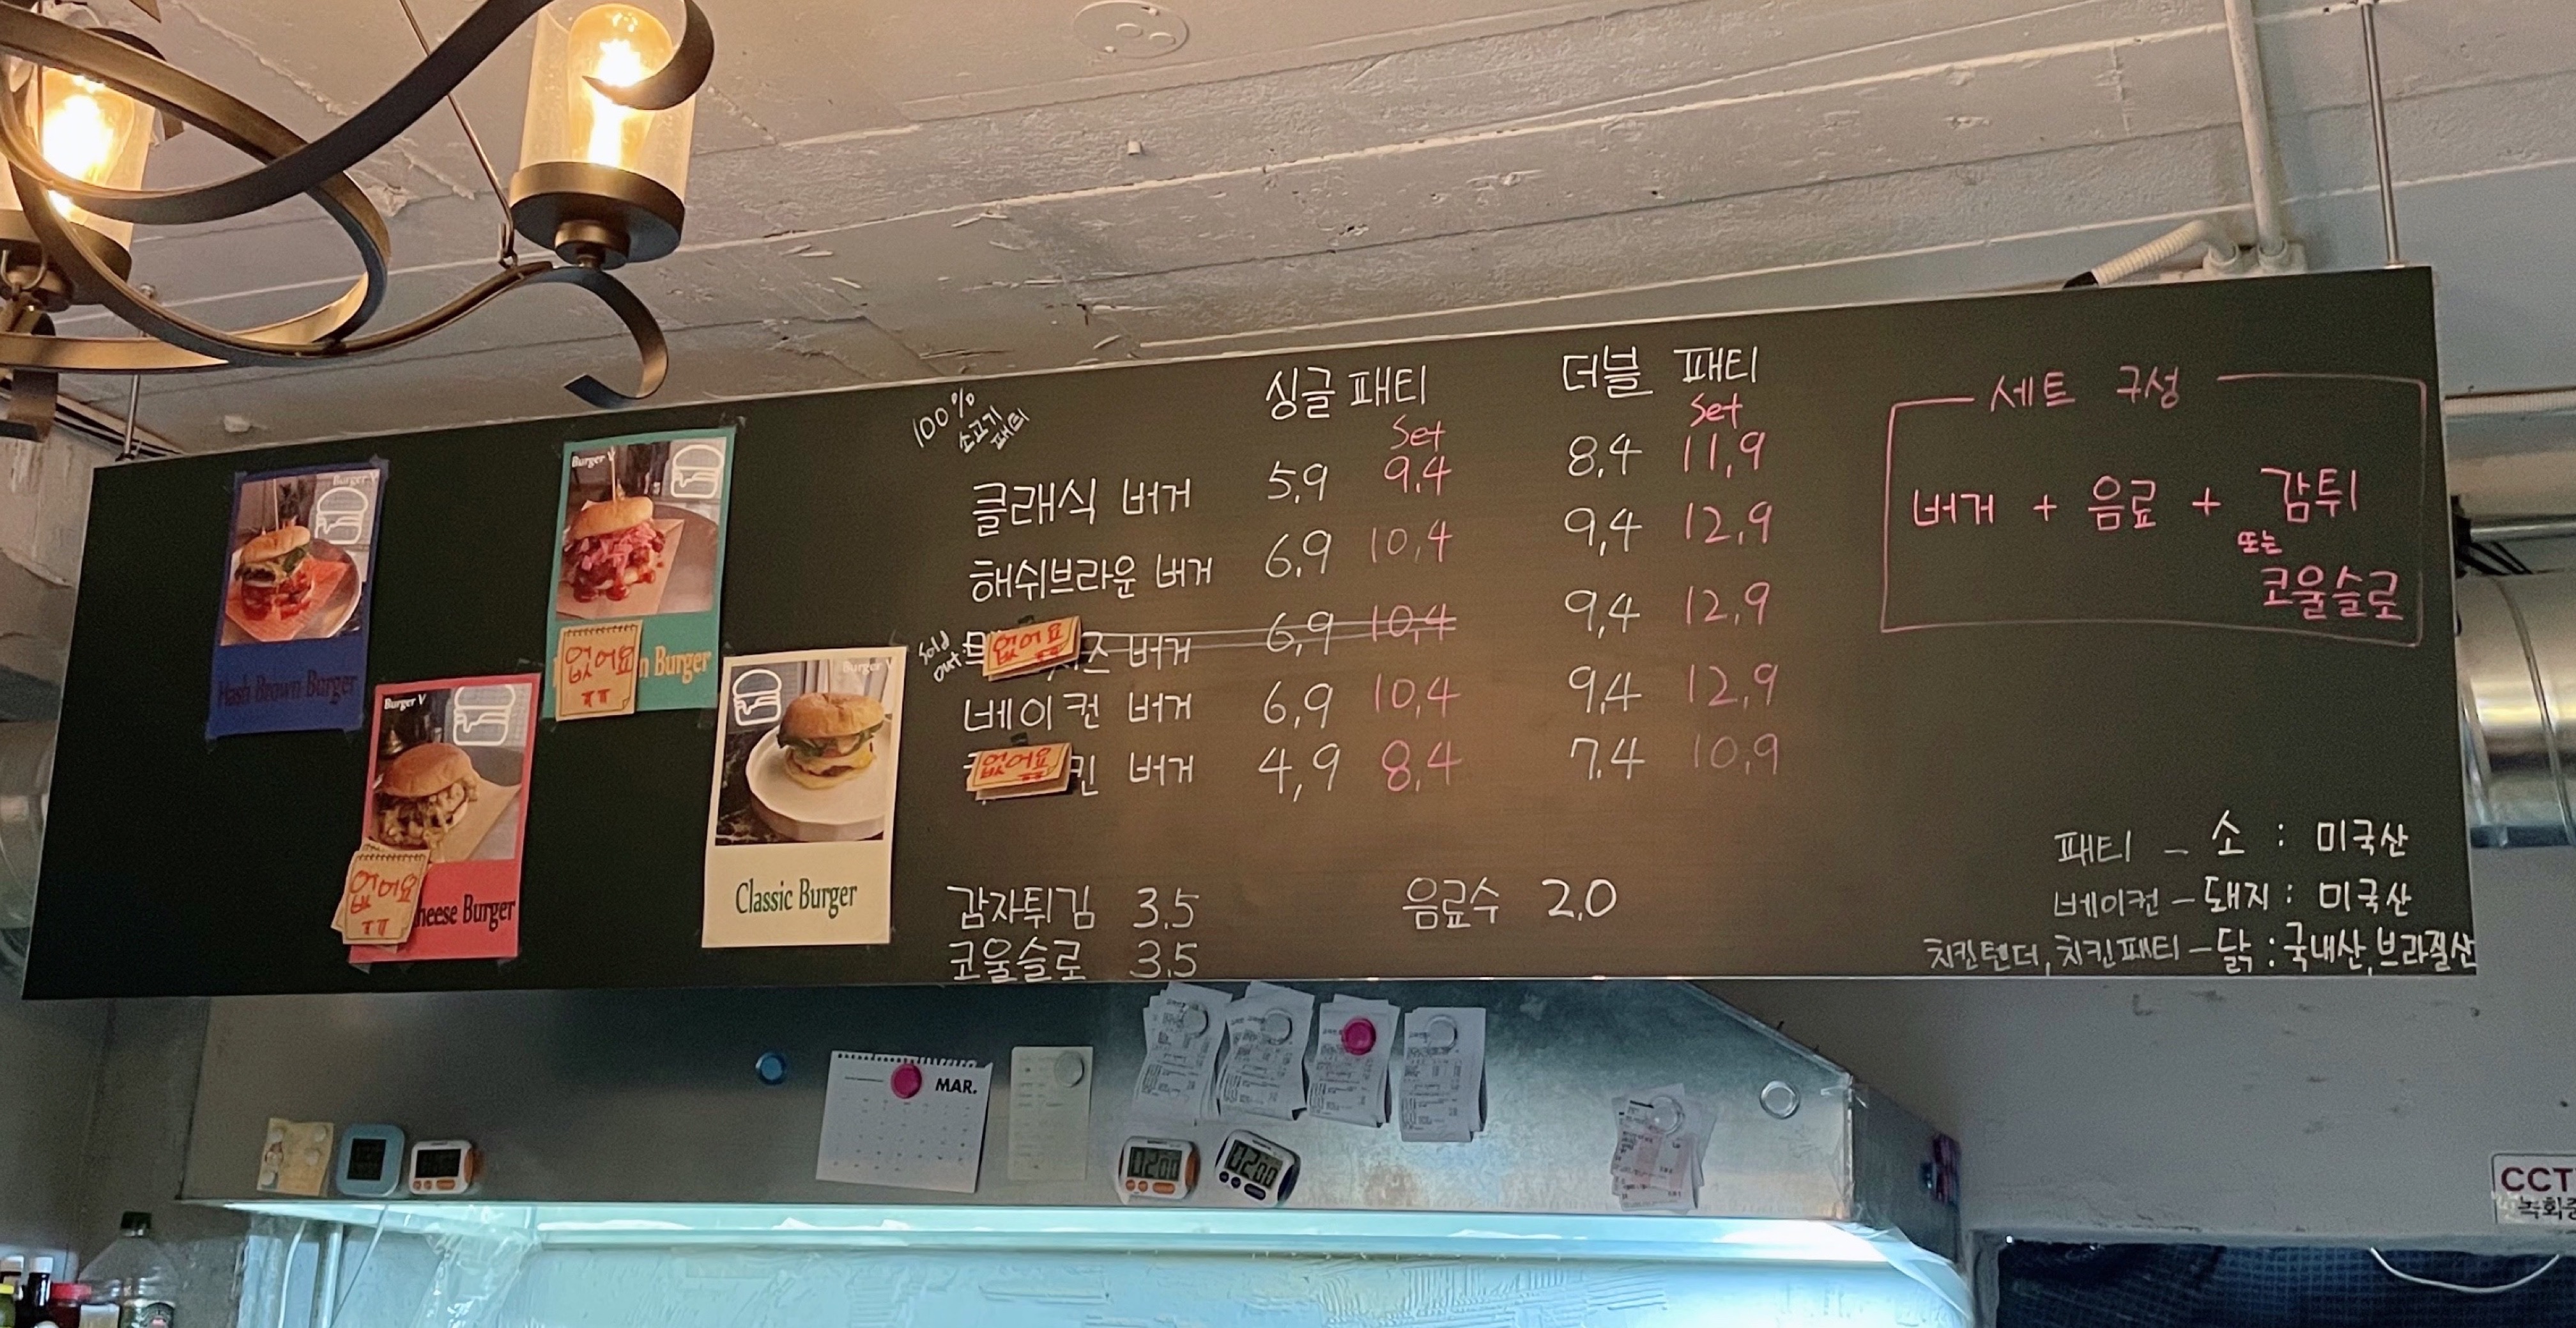 Burger V
Hash Brown Burger
Burger V
없어요
ㅠㅠ
n Burger
Burger V
없어요
ㅠㅠ
heese Burger
Burger V
Classic Burger
100%
소고기
패티
싱글 패티 더블 패티
Set Set
클래식 버거 5,9 9,4 8,4 11,9
해쉬브라운 버거 6,9 10,4 9,4 12,9
Sold out 없어요 즈 버거 6,9 10,4 9,4 12,9
베이컨 버거 6,9 10,4 9,4 12,9
없어요 ㅠㅠ 킨 버거 4,9 8,4 7.4 10,9
감자튀김 3.5 음료수 2.0
코울슬로 3.5
세트 구성
버거 + 음료 + 감튀
또는
코울슬로
패티 - 소 : 미국산
베이컨 - 돼지 : 미국산
치킨텐더, 치킨패티 - 닭 : 국내산, 브라질산
MAR.
0200
0200
CCT
녹화중